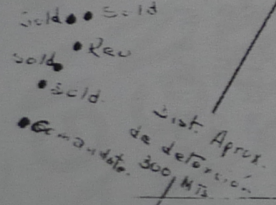 Sold
Sold
Rev
Sold
Sold.
Comandate.
Dist. Aprox.
de detención
300 Mts